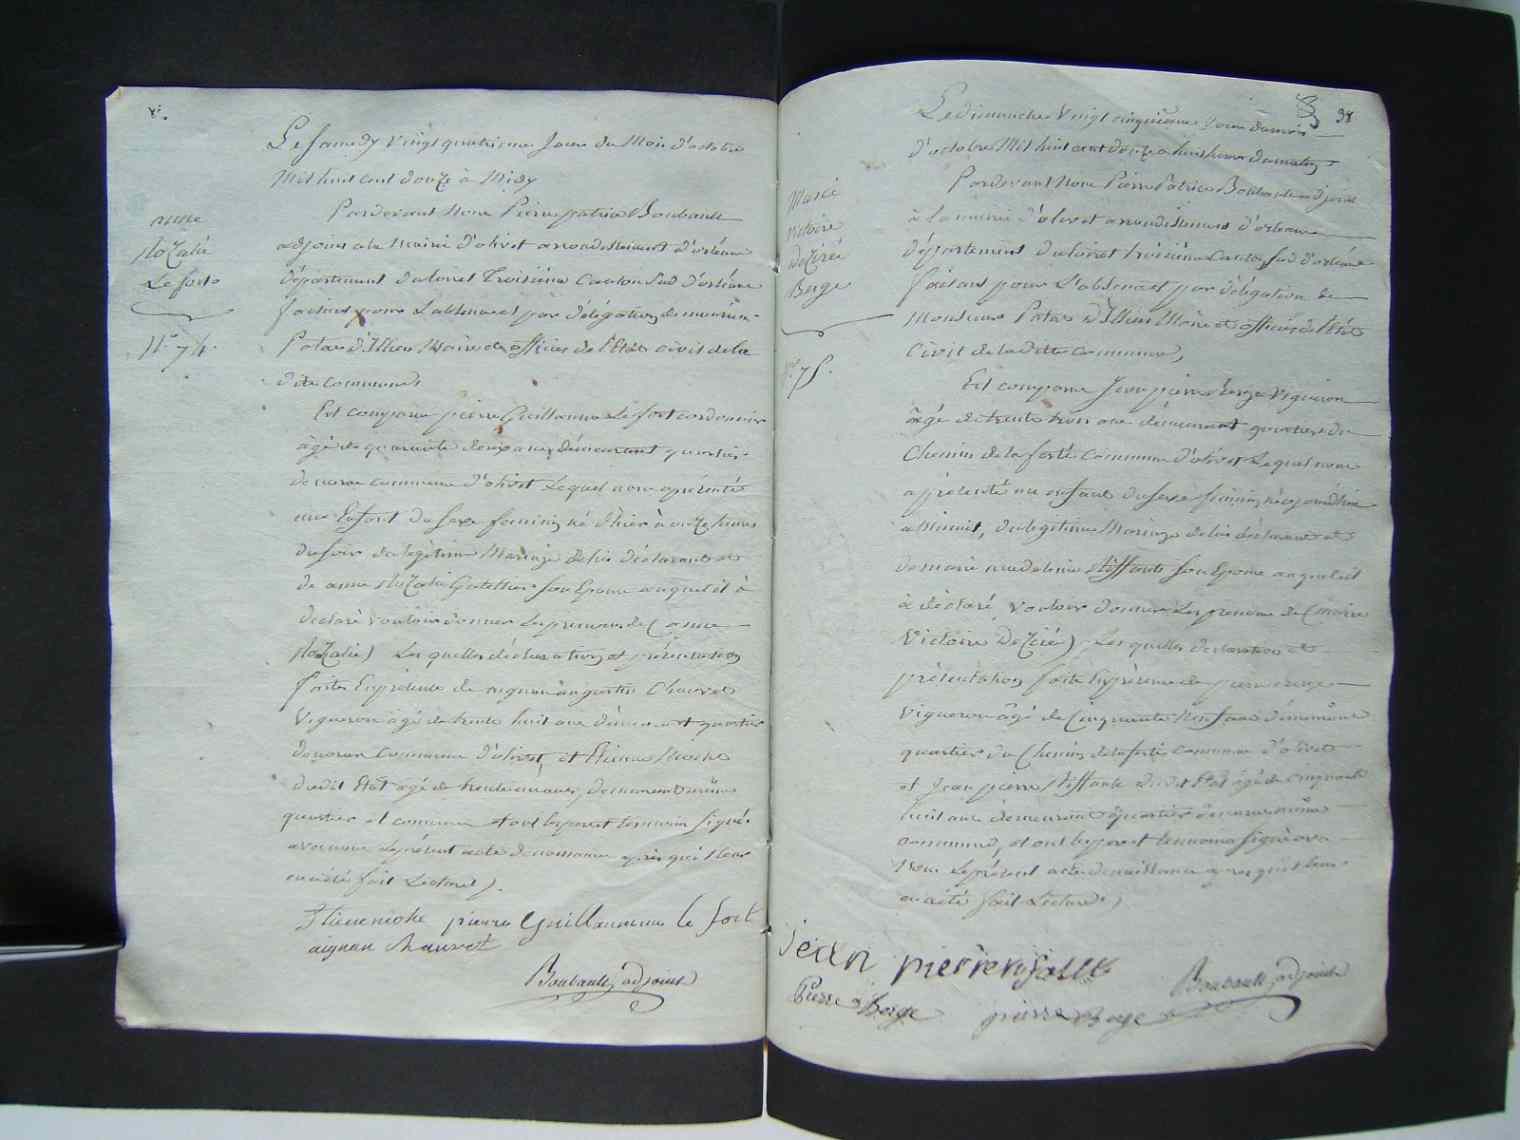 Le samedy vingt quatrieme Jour du Mois d'octobre
Mil huit cent douze à Midy
Pardevant Nous Pierre patrice Boubault
adjoint a la Mairie d'olivet arrondissement d'orléans
département du loiret Troisieme Canton Sud d'orléans
faisant pour L'absence et par délégation de monsieur
Patas d'Illiers Maire et officier de l'Etat civil de la
dite commune
anne
Rozalie
Le fort
N.º 74.
Est comparu pierre Guillaume Le fort cordonnier
âgé de quarante deux ans demeurant quartier
commune d'olivet Lequel nous a présenté
une Enfant du sexe feminin né d'hier à onze heures
du soir du légitime Mariage de lui déclarant et
de anne Rozalie son Epouse auquel il à
declaré vouloir donner Les prenoms de (anne
Rozalie) Les quelles déclaration et présentation
faites En présence de aignan augustin Chauvet
Vigneron âgé de trente huit ans demeurant quartier
commune d'olivet, et Etienne
dudit Etat âgé de trente ans, demeurant même
quartier et commune et ont le pere et temoins signé
avec nous Le présent acte de naissance après qu'il leur
en a été fait Lecture).
pierre Guillaumme le fort
aignan Chauvet
Boubault, adjoint
38
Le dimanche Vingt cinquieme Jour du mois
d'octobre Mil huit cent douze a huit heures du matin
Pardevant Nous Pierre Patrice Boubault adjoint
à la mairie d'olivet arrondissement d'orleans
département du loiret troisieme Canton Sud d'orléans
faisant pour L'absence et par délégation de
Monsieur Patas d'Illiers Maire et officier de l'Etat
Civil de la ditte commune,
Marie
victoire
deziré
Berge
75.
Est comparu Jean pierre Berge Vigneron
âgé de trente trois ans demeurant quartier du
Chemin de la ferté Commune d'olivet Lequel nous
a présenté un enfant du sexe féminin né aujourd'hui
a Minuit, du légitime Mariage de lui déclarant et
de marie madelaine son Epouse auquel il
à déclaré vouloir donner Les prenoms de (marie
Victoire Deziré) Les quelles declaration et
présentation faite En présence de pierre Berge
Vigneron âgé de Cinquante Neuf ans demeurant
quartier du Chemin de la ferté commune d'olivet
et Jean pierre dudit Etat âgé de cinquante
huit ans demeurant quartier même
commune, et ont le pere et temoins signé avec
Nous Le présent acte de naissance après qu'il leur
en a été fait Lecture)
jean pierre
Boubault, adjoint
Pierre Berge pierre Berge